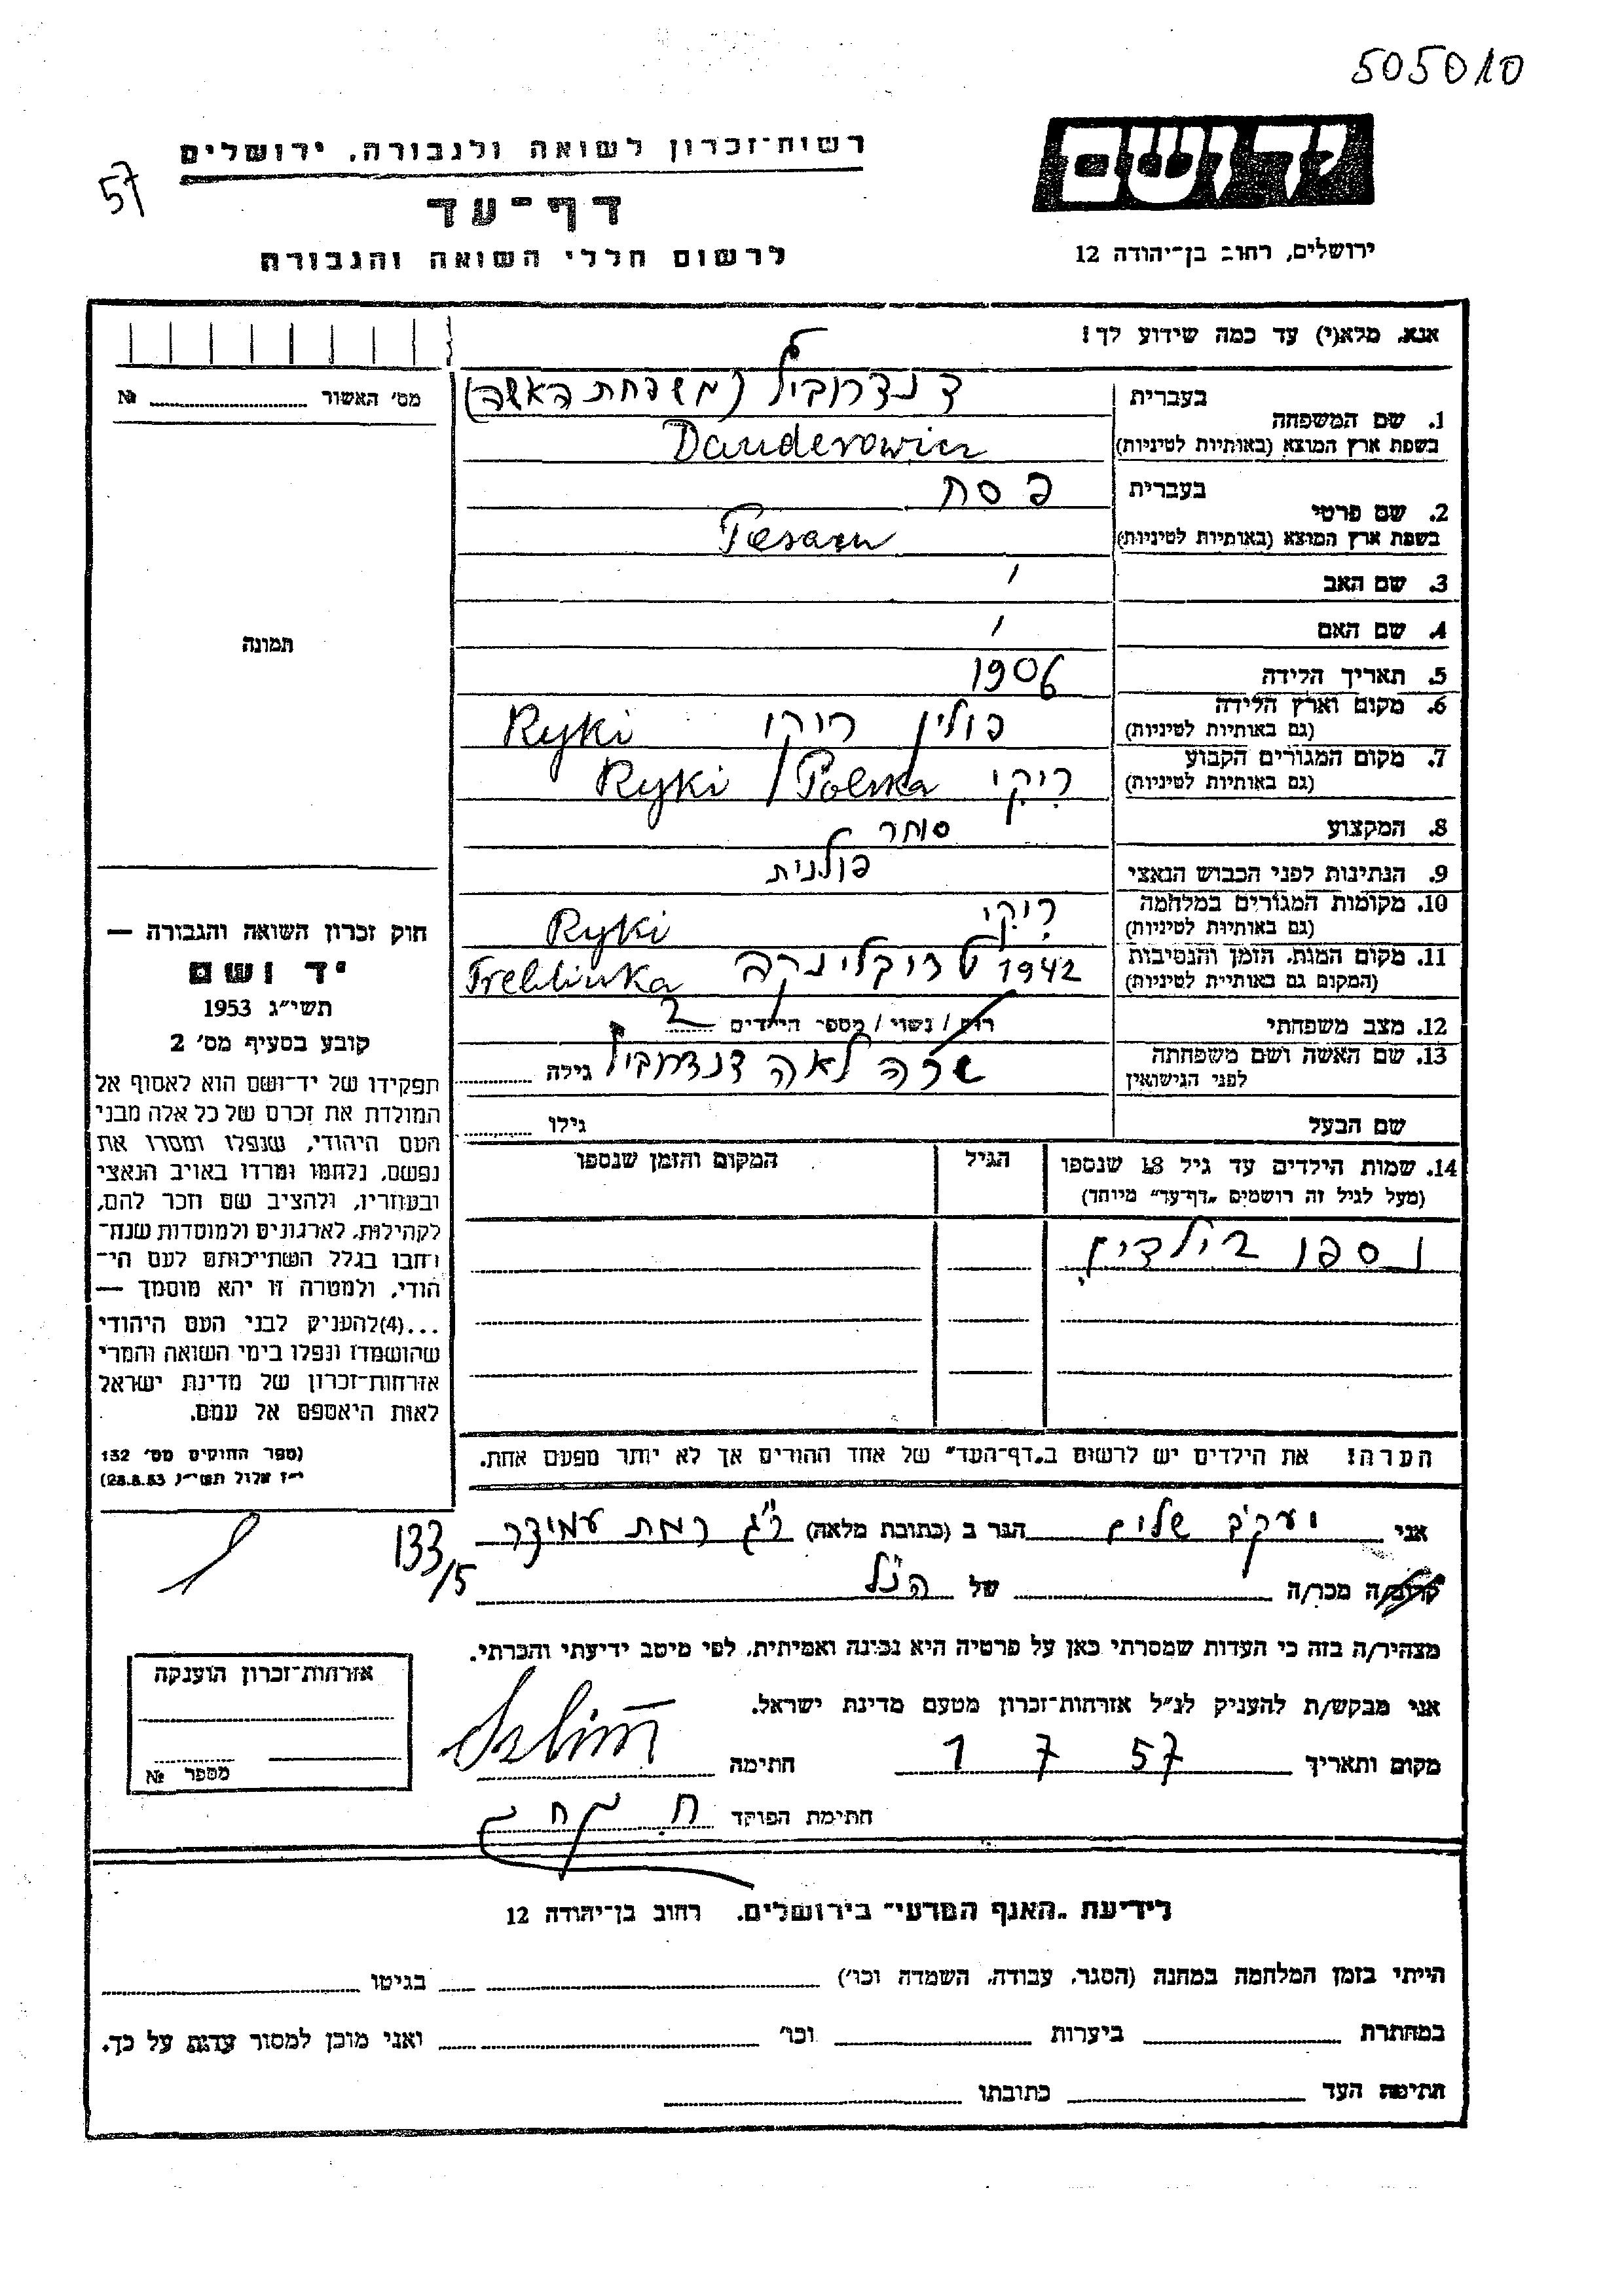 505010
יד ושם
רשות־זכרון לשואה ולגבורה, ירושלים
57
דף־עד
לרשום חללי השואה והגבורה
ירושלים, רחוב בן־יהודה 12
אנא, מלא(י) עד כמה שידוע לך!
מס׳ האשור № 
1. שם המשפחה
בעברית (משפחת האשה)
בשפת ארץ המוצא (באותיות לטיניות) Danderowicz
2. שם פרטי
בעברית פסח
בשפת ארץ המוצא (באותיות לטיניות)
3. שם האב
4. שם האם
תמונה
5. תאריך הלידה 1906
6. מקום וארץ הלידה פולין ריקי Ryki
(גם באותיות לטיניות)
7. מקום המגורים הקבוע ריקי Ryki / Polska
(גם באותיות לטיניות)
8. המקצוע סוחר
9. הנתינות לפני הכבוש הנאצי פולנית
10. מקומות המגורים במלחמה ריקי Ryki
(גם באותיות לטיניות)
11. מקום המות, הזמן והנסיבות 1942 טרובלינקה Treblinka
(המקום גם באותיות לטיניות)
12. מצב משפחתי רוק / נשוי / מספר הילדים 2
13. שם האשה ושם משפחתה שרה לאה גילה
לפני הנישואין
שם הבעל גילו
14. שמות הילדים עד גיל 18 שנספו הגיל המקום והזמן שנספו
(מעל לגיל זה רושמים „דף־עד” מיוחד)
נספו
הערה! את הילדים יש לרשום ב„דף־העד” של אחד ההורים אך לא יותר מפעם אחת.
חוק זכרון השואה והגבורה —
יד ושם
תשי״ג 1953
קובע בסעיף מס׳ 2
תפקידו של יד־ושם הוא לאסוף אל
המולדת את זכרם של כל אלה מבני
העם היהודי, שנפלו ומסרו את
נפשם, נלחמו ומרדו באויב הנאצי
ובעוזריו, ולהציב שם וזכר להם,
לקהילות, לארגונים ולמוסדות שנח־
רבו בגלל השתייכותם לעם הי־
הודי, ולמטרה זו יהא מוסמך —
...(4)להעניק לבני העם היהודי
שהושמדו ונפלו בימי השואה והמרי
אזרחות־זכרון של מדינת ישראל
לאות היאספם אל עמם.
(ספר החוקים מס׳ 132
י״ז אלול תשי״ג, 28.8.53)
אני יעקב שלום הגר ב (כתובת מלאה) ר״ג רמת עמידר 133/5
קרוב/ה מכר/ה של הנ״ל
מצהיר/ה בזה כי העדות שמסרתי כאן על פרטיה היא נכונה ואמיתית, לפי מיטב ידיעתי והכרתי.
אני מבקש/ת להעניק לנ״ל אזרחות־זכרון מטעם מדינת ישראל.
מקום ותאריך 1 7 57 חתימה
חתימת הפוקד
אזרחות־זכרון הוענקה
מספר №
לידיעת „האגף המדעי” בירושלים, רחוב בן־יהודה 12
הייתי בזמן המלחמה במחנה (הסגר, עבודה, השמדה וכו׳) בגיטו
במחתרת ביערות וכו׳ ואני מוכן למסור עדות על כך.
חתימת העד כתובתו